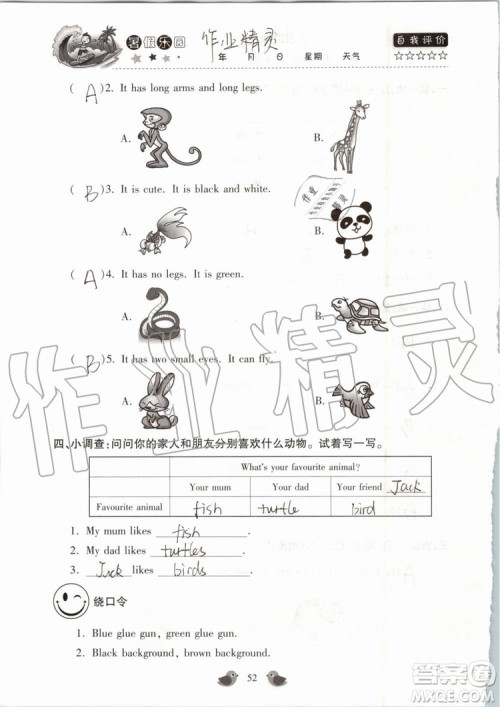 暑假乐园 作业精灵 自我评价
年 月 日 星期 天气 ☆☆☆☆☆
( A )2. It has long arms and long legs.
A. B.
( B )3. It is cute. It is black and white.
作业
精灵
A. B.
( A )4. It has no legs. It is green.
A. B.
( B )5. It has two small eyes. It can fly.
A. B.
作业精灵
四、小调查:问问你的家人和朋友分别喜欢什么动物。试着写一写。
What's your favourite animal?
Your mum Your dad Your friend Jack
Favourite animal fish turtle bird
1. My mum likes fish .
2. My dad likes turtles .
3. Jack likes birds .
绕口令
1. Blue glue gun, green glue gun.
2. Black background, brown background.
52
答案圈
MXQE.COM